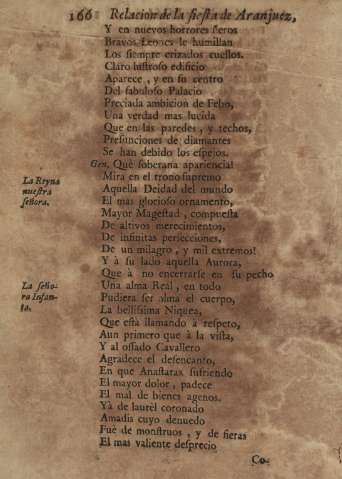 166 Relacion de la fiesta de Aranjuez,
Y en nuevos horrores fieros
Bravos Leones le humillan
Los siempre erizados cuellos.
Claro lustroso edificio
Aparece, y en su centro
Del fabuloso Palacio
Preciada ambicion de Febo,
Una verdad mas lucida
Que en las paredes, y techos,
Presunciones de diamantes
Se han debido los espejos.
Gen. Què soberana apariencia!
Mira en el trono supremo
La Reyna nuestra señora.
Aquella Deidad del mundo
El mas glorioso ornamento,
Mayor Magestad, compuesta
De altivos merecimientos,
De infinitas perfecciones,
De un milagro, y mil extremos!
Y à su lado aquella Aurora,
Que à no encerrarse en su pecho
La señora Infanta.
Una alma Real, en todo
Pudiera ser alma el cuerpo,
La bellissima Niquea,
Que està llamando à respeto,
Aun primero que à la vista,
Y al ossado Cavallero
Agradece el desencanto,
En que Anastarax sufriendo
El mayor dolor, padece
El mal de bienes agenos.
Yà de laurel coronado
Amadis cuyo denuedo
Fue de monstruos, y de fieras
El mas valiente desprecio
Co-